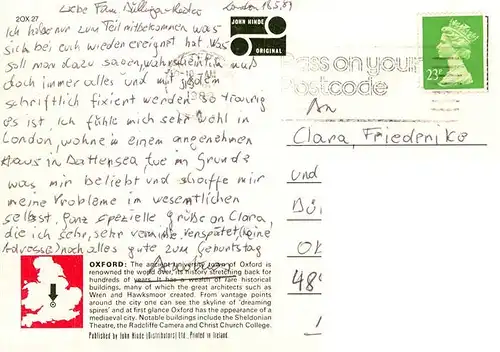 20X 27
Liebe Fam. 
London 18.5.89
Ich habe nur zum Teil mitbekommen was
sich bei euch wieder ereignet hat. Was
soll man dazu sagen, wahrscheinlich muß
doch immer alles und mit jedem
schriftlich fixiert werden so traurig
es ist. Ich fühle mich sehr wohl in
London, wohne in einem angenehmen
Haus in Battersea, tue im Grunde
was mir beliebt und schaffe mir
meine Probleme im wesentlichen
selbst. Ganz spezielle Grüße an Clara,
die ich sehr, sehr vermisse. Verspätet (keine
Adresse) noch alles gute zum Geburtstag
JOHN HINDE
ORIGINAL
pass on your
postcode
23P
An
Clara, Friederike
und
OK
OXFORD: The ancient university town of Oxford is
renowned the world over, its history stretching back for
hundreds of years. It has a wealth of rare historical
buildings, many of which the great architects such as
Wren and Hawksmoor created. From vantage points
around the city one can see the skyline of 'dreaming
spires' and at first glance Oxford has the appearance of a
mediaeval city. Notable buildings include the Sheldonian
Theatre, the Radcliffe Camera and Christ Church College.
Published by John Hinde (Distributors) Ltd., Printed in Ireland.